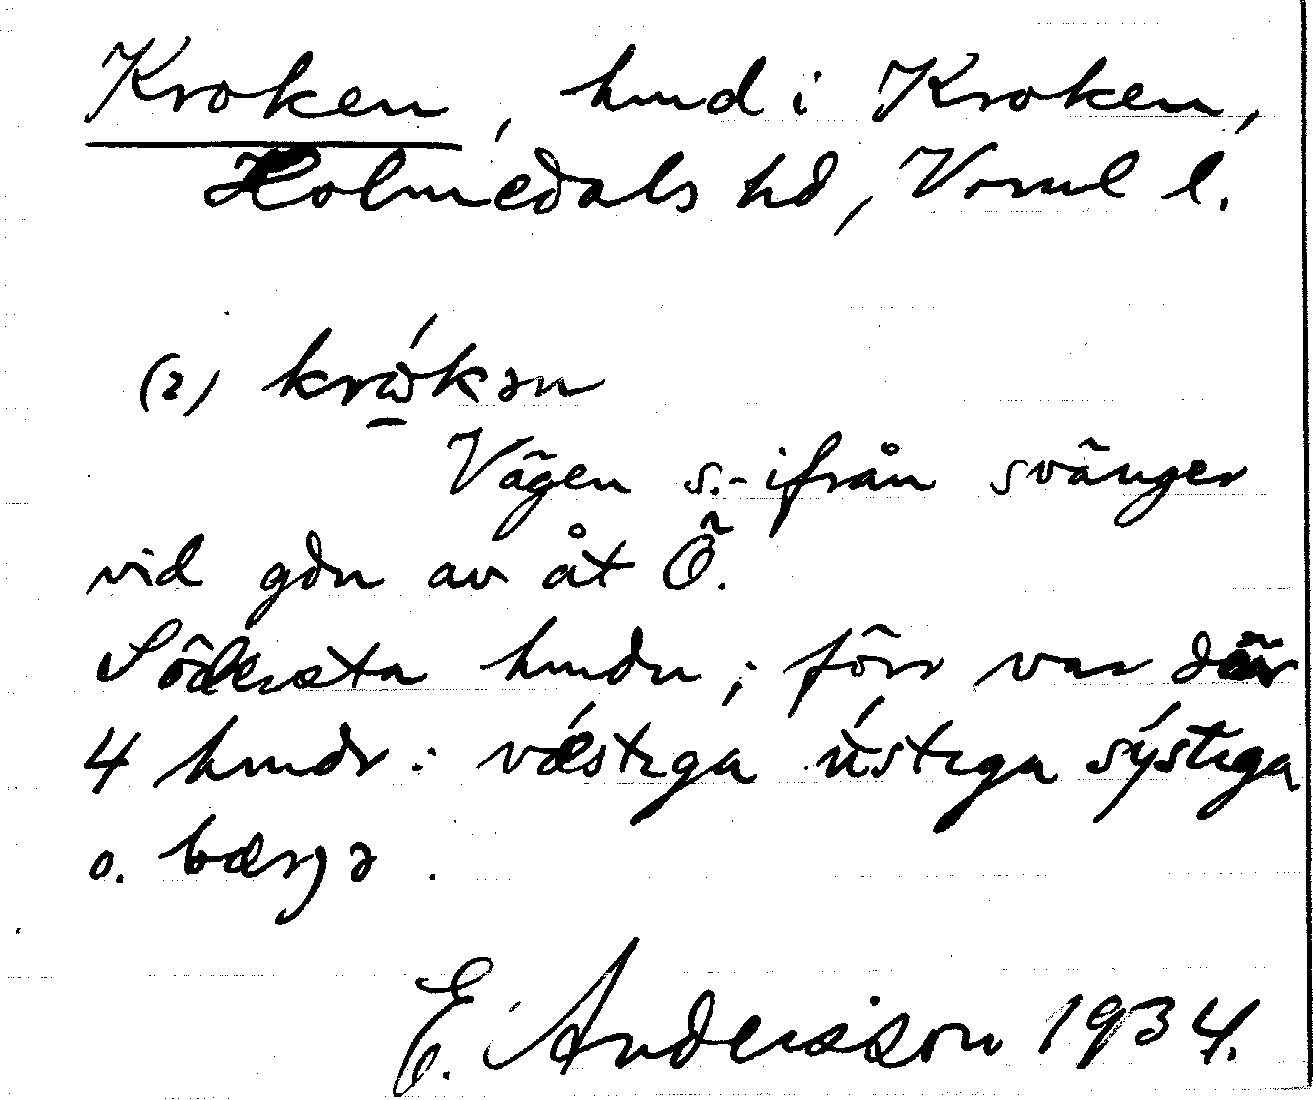 Kroken, hmd i Kroken,
Holmedals hd, Vrml l.
(2) krώkən
Vägen s.-ifrån svänger
vid gdn av åt Ö.
Södersta hmdn; förr var där
4 hmdr: vǽstıga ústıga sýstıga
o. bærjə.
E. Andersson 1934.